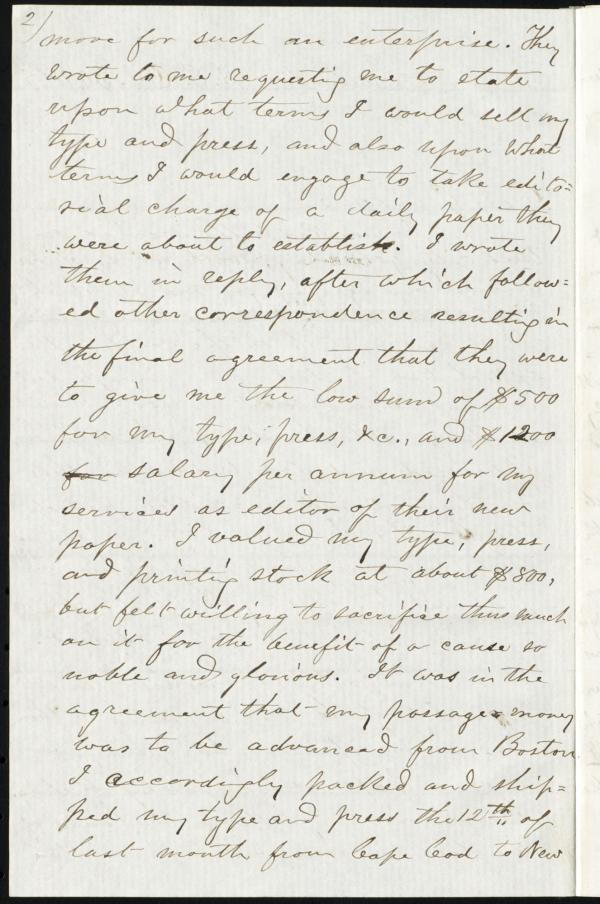 2)
move for such an enterprise. They
wrote to me requesting me to state
upon what terms I would sell my
type and press, and also upon what
terms I would engage to take edito=
rial charge of a daily paper they
were about to establish. I wrote
them in reply, after which follow=
ed other correspondence resulting in
the final agreement that they were
to give me the low sum of $500
for my type, press, &c., and $1200
for salary per annum for my
services as editor of their new
paper. I valued my type, press,
and printing stock at about $800,
but felt willing to sacrifise thus much
on it for the benefit of a cause so
noble and glorious. It was in the
agreement that my passage=money
was to be advanced from Boston
I accordingly packed and ship=
ped my type and press the 12th of
last month from Cape Cod to New